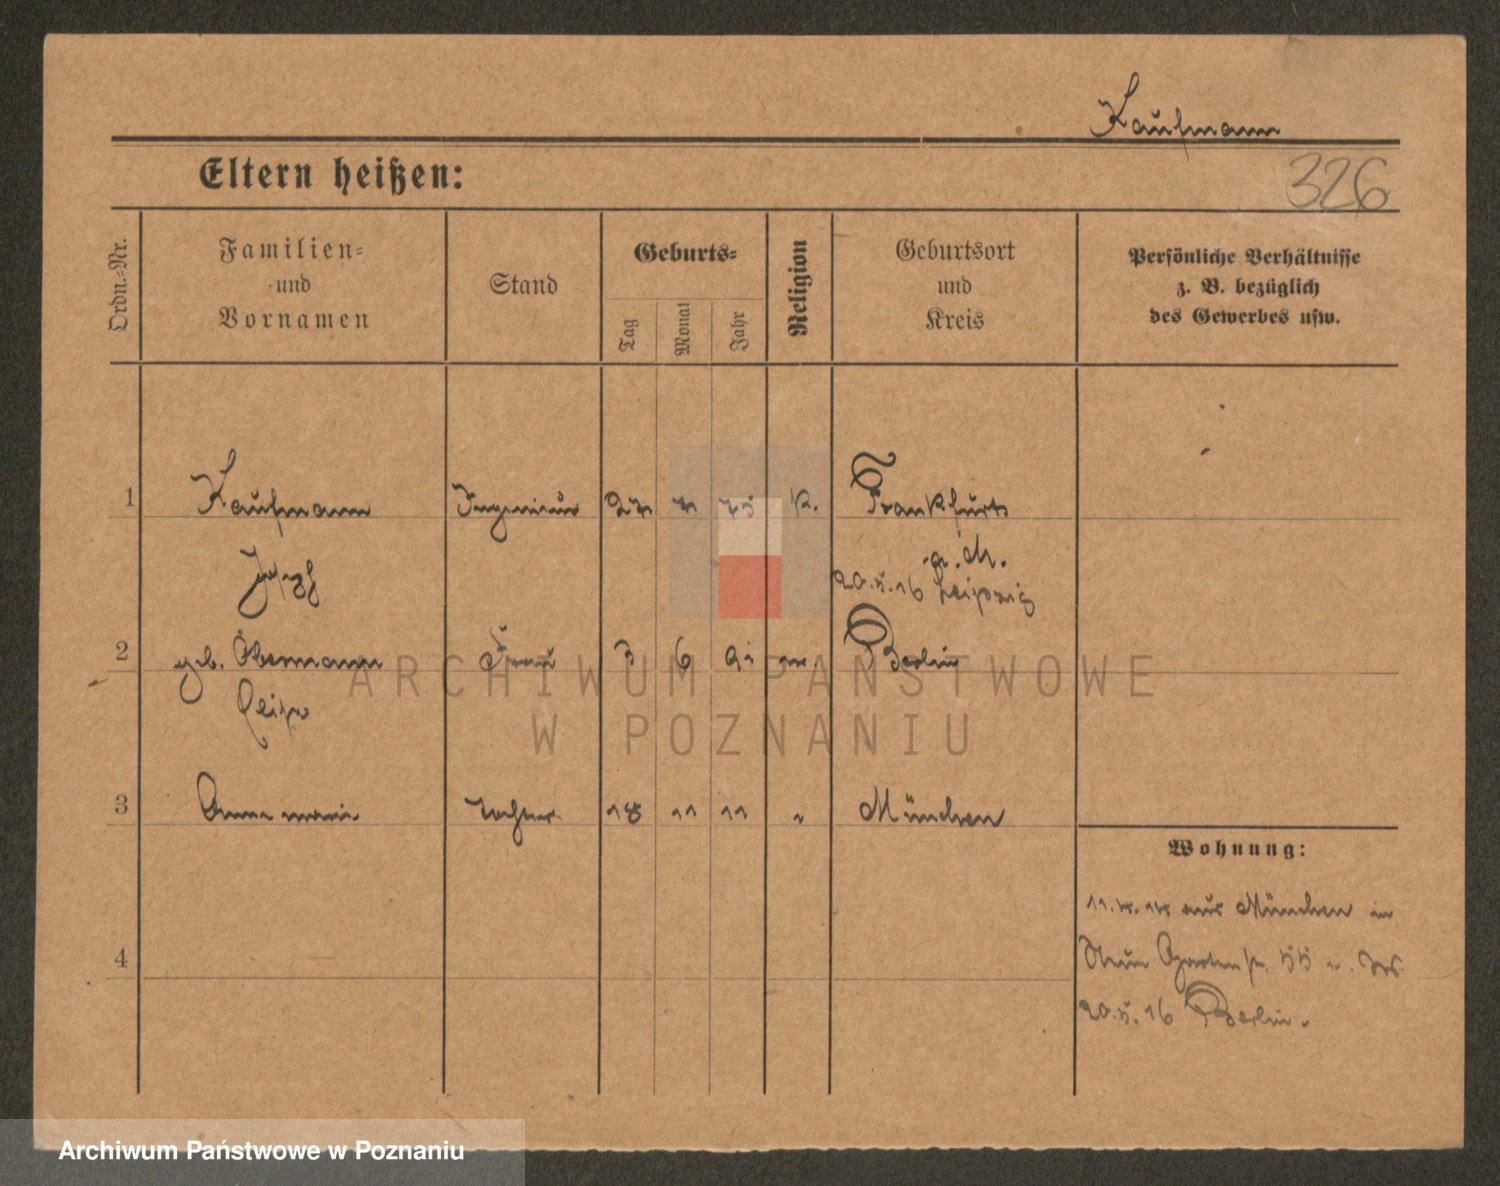 Kaufmann
Eltern heißen:
326
Ordn.-Nr.
Familien-
und
Vornamen
Stand
Geburts-
Tag
Monat
Jahr
Religion
Geburtsort
und
Kreis
Persönliche Verhältnisse
z. B. bezüglich
des Gewerbes usw.
1 Kaufmann Ingenieur 27 7 75 K. Frankfurt
Josef a. M.
20.5.16 Leipzig
2 geb. Obermann Frau 3 6 Berlin
3 Annemarie Tochter 18 11 11 " München
Wohnung:
11.4.14 aus München in
Neue Gartenstr. 55
4
20.5.16 Berlin.
ARCHIWUM PAŃSTWOWE
W POZNANIU
Archiwum Państwowe w Poznaniu